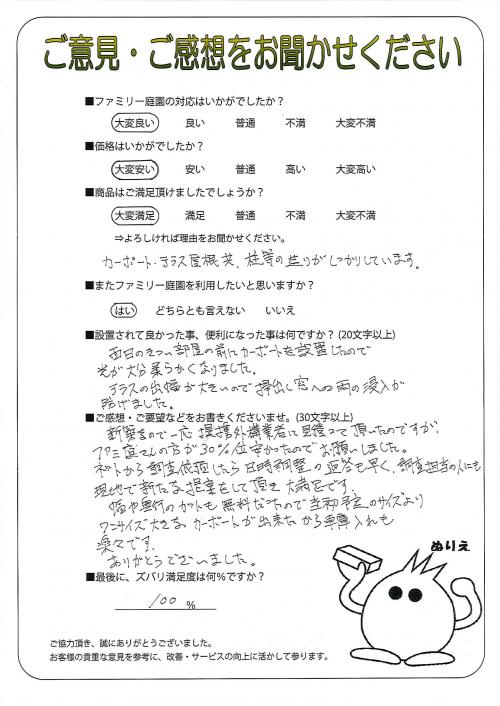 ご意見・ご感想をお聞かせください
■ファミリー庭園の対応はいかがでしたか？
大変良い 良い 普通 不満 大変不満
■価格はいかがでしたか？
大変安い 安い 普通 高い 大変高い
■商品はご満足頂けましたでしょうか？
大変満足 満足 普通 不満 大変不満
⇒よろしければ理由をお聞かせください。
カーポート・テラス屋根共、柱等の造りがしっかりしています。
■またファミリー庭園を利用したいと思いますか？
はい どちらとも言えない いいえ
■設置されて良かった事、便利になった事は何ですか？(20文字以上)
西日のきつい部屋の前にカーポートを設置したので
光が大分柔らかくなりました。
テラスの出幅が大きいので掃出し窓への雨の浸入が
防げました。
■ご感想・ご要望などをお書きくださいませ。(30文字以上)
新築なので一応提携外構業者に見積って頂いたのですが、
ファミ庭さんの方が30%位安かったのでお願いしました。
ネットから調査依頼したら日時調整の返答も早く、調査担当の人にも
現地で新たな提案をして頂き大満足です。
幅や奥行のカットも無料だったので当初予定のサイズより
ワンサイズ大きなカーポートが出来たから車庫入れも
楽々です。
ありがとうございました。
ぬりえ
■最後に、ズバリ満足度は何%ですか？
100 %
ご協力頂き、誠にありがとうございました。
お客様の貴重な意見を参考に、改善・サービスの向上に活かして参ります。